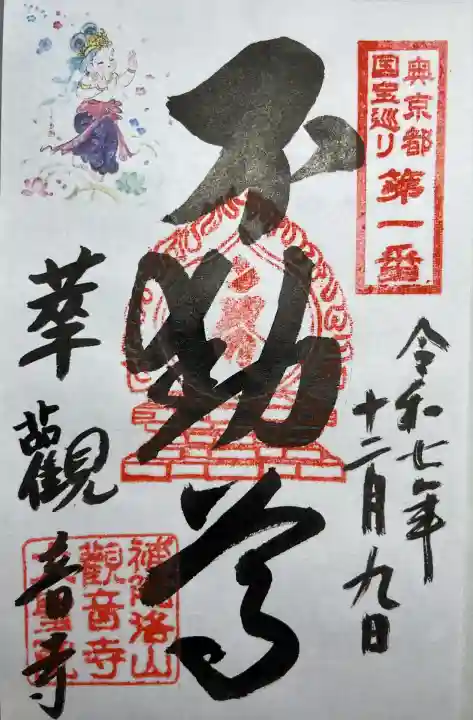 奥京都
国宝巡り 第一番
令和七年
十二月九日
不動尊
華 觀音寺
補陀洛山
觀音寺